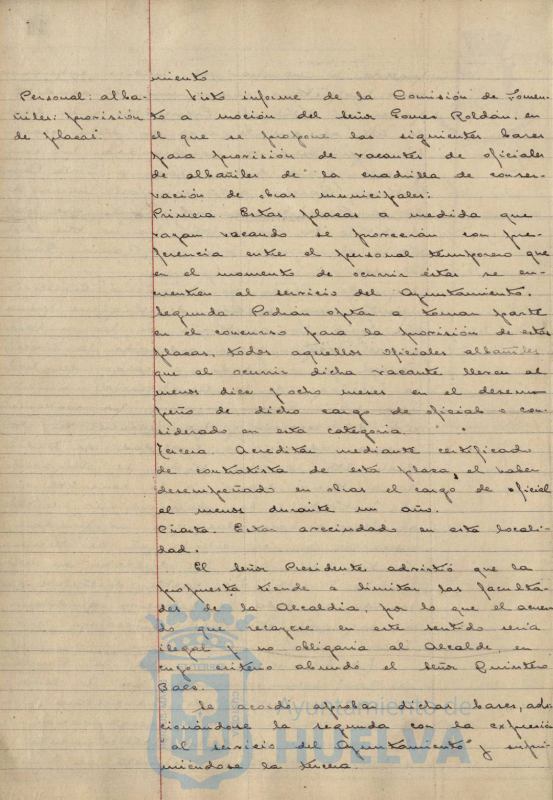 miento
Personal: alba-
ñiles: provisión
de plazas.
Visto informe de la Comisión de Fomen-
to a moción del señor Gomez Roldán, en
el que se propone las siguientes bases
para provisión de vacantes de oficiales
de albañiles de la cuadrilla de conser-
vación de obras municipales:
Primera. Estas plazas a medida que
vayan vacando se proveerán con pre-
ferencia entre el personal temporero que
en el momento de ocurrir éstas se en-
cuentren al servicio del Ayuntamiento.
Segunda. Podrán optar a tomar parte
en el concurso para la provisión de estas
plazas, todos aquellos oficiales albañiles
que al ocurrir dicha vacante lleven al
menos diez y ocho meses en el desem-
peño de dicho cargo de oficial o con-
siderado en esta categoria.
Tercera. Acreditar mediante certificado
de contratista de esta plaza, el haber
desempeñado en obras el cargo de oficial
al menos durante un año.
Cuarta. Estar avecindado en esta locali-
dad.
El Señor Presidente advirtió que la
propuesta tiende a limitar las faculta-
des de la Alcaldia, por lo que el acuer-
do que recayese en este sentido seria
ilegal y no obligaria al Alcalde, en
cuyo criterio abundó el señor Quintero
Baez.
Se acordó aprobar dichas bases, adi-
cionándose la segunda con la expresión
"al servicio del Ayuntamiento" y supri-
miéndose la tercera.
Ayuntamiento de
HUELVA